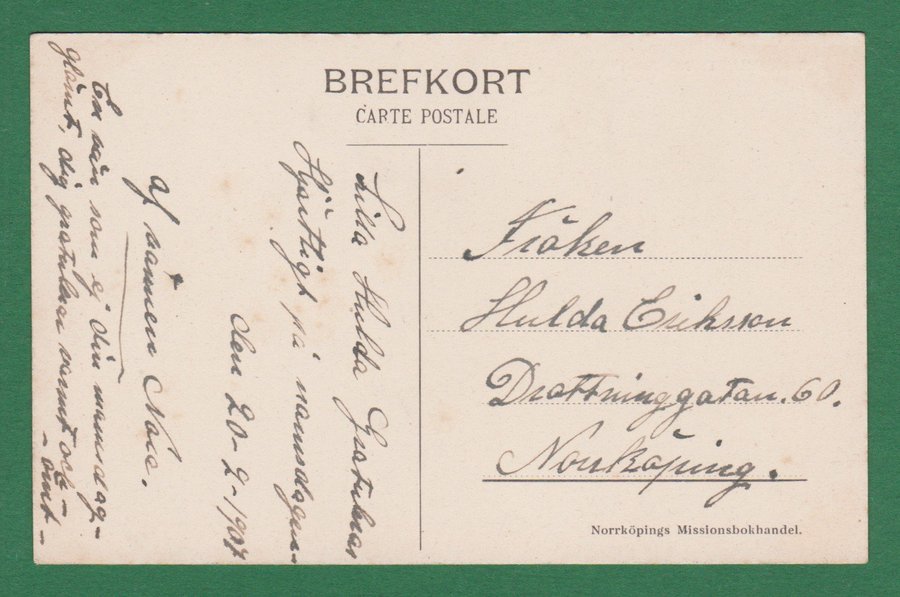 BREFKORT
CARTE POSTALE
Lilla Hulda Gratuleras
Hjärtligt på namnsdagen
den 20-2-1907
af vännen
En vän som ej din namnsdag
glömt, dig gratulerar varmt och
ömt
Fröken
Hulda Eriksson
Drottninggatan. 60.
Norrköping.
Norrköpings Missionsbokhandel.